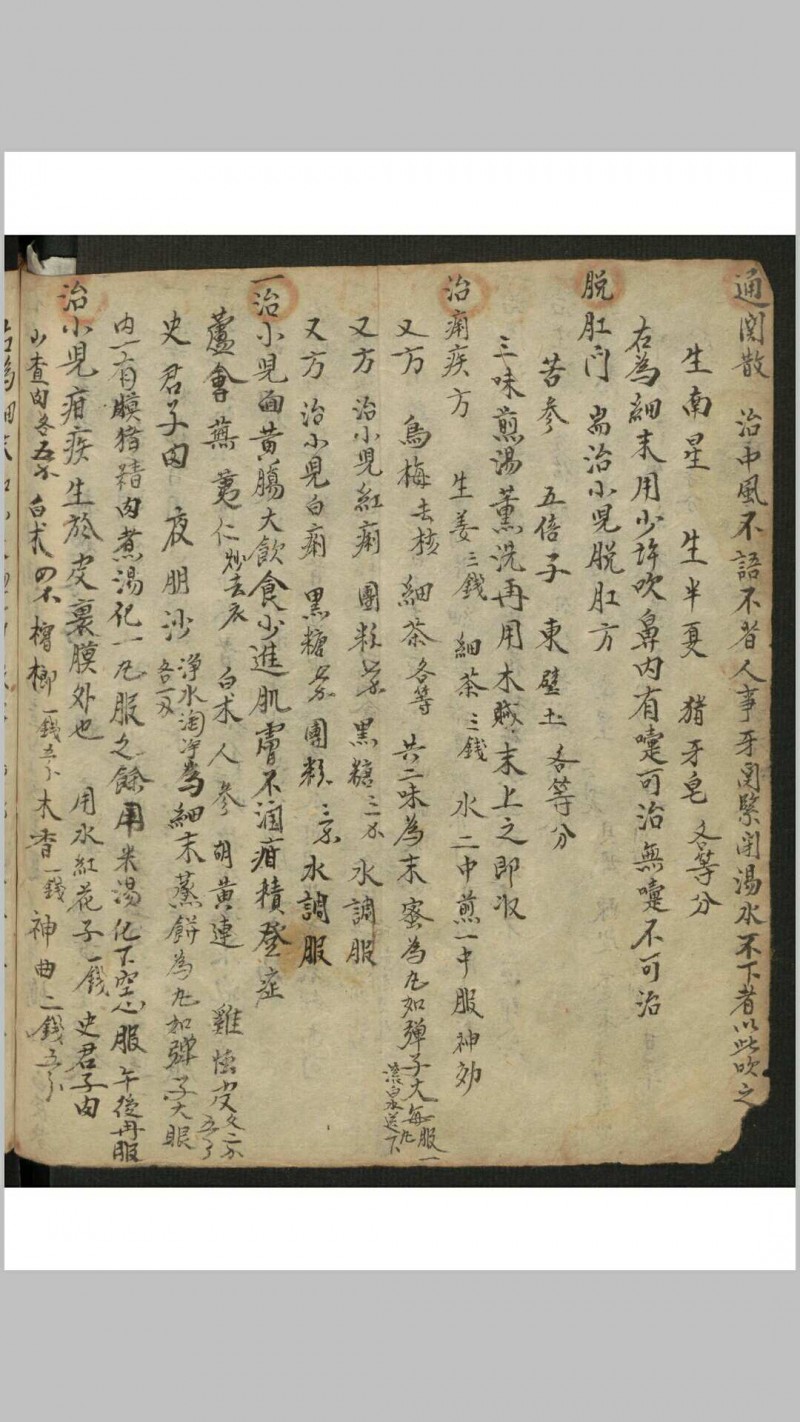 通関散 治中風不語不省人事牙関緊閉湯水不下者以此吹之
生南星 生半夏 猪牙皂 各等分
右為細末用少許吹鼻内有嚔可治無嚔不可治
脱肛门 耑治小児脱肛方
苦参 五倍子 東壁土 各等分
三味煎湯薫洗再用木賊末上之即收
治痢疾方 生姜三錢 細茶三錢 水二中煎一中服神効
又方 烏梅去核 細茶各等 共二味為末蜜為丸如弾子大每服一丸滾湯送下
又方 治小児紅痢 團粉 黑糖三 水調服
又方 治小児白痢 黑糖 團粉 三 水調服
一治小児面黄腸大飲食少進肌膚不潤疳積登症
蘆會 蕪荑仁炒去衣 白术 人参 胡黄連 雞 皮各二 五分
史君子肉 夜明沙淨水淘淨 各一 為細末蒸餅為丸如弾子大眼
内一有膜猪精肉煮湯化一丸服之餘用米湯化下空心服午後再服
治小児疳疾生於皮裏膜外也 用水紅花子一錢 史君子肉
山查肉各五 白术四 檳榔一錢五分 木香一錢 神曲二錢五分
右為細末